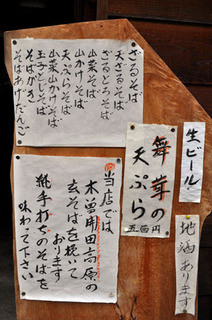 ざるそば
天ざるそば
ざるとろそば
山菜そば
天ぷらそば
山かけそば
山菜山かけそば
玉子とじそば
そばがき
そばあげだんご
舞茸の
天ぷら
五百円
生ビール
地酒あります
当店では
木曽開田高原の
玄そばを挽いて
おります
純手打ちのそばを
味わって下さい